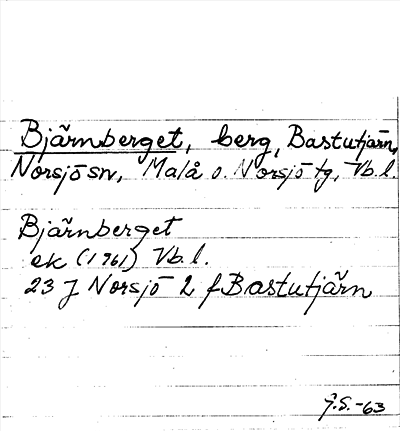 Bjärnberget, berg, Bastutjärn,
Norsjö sn, Malå o. Norsjö tg, Vb.l.
Bjärnberget
ek (1961) Vb.l.
23 J Norsjö 2 f Bastutjärn
J.S.-63